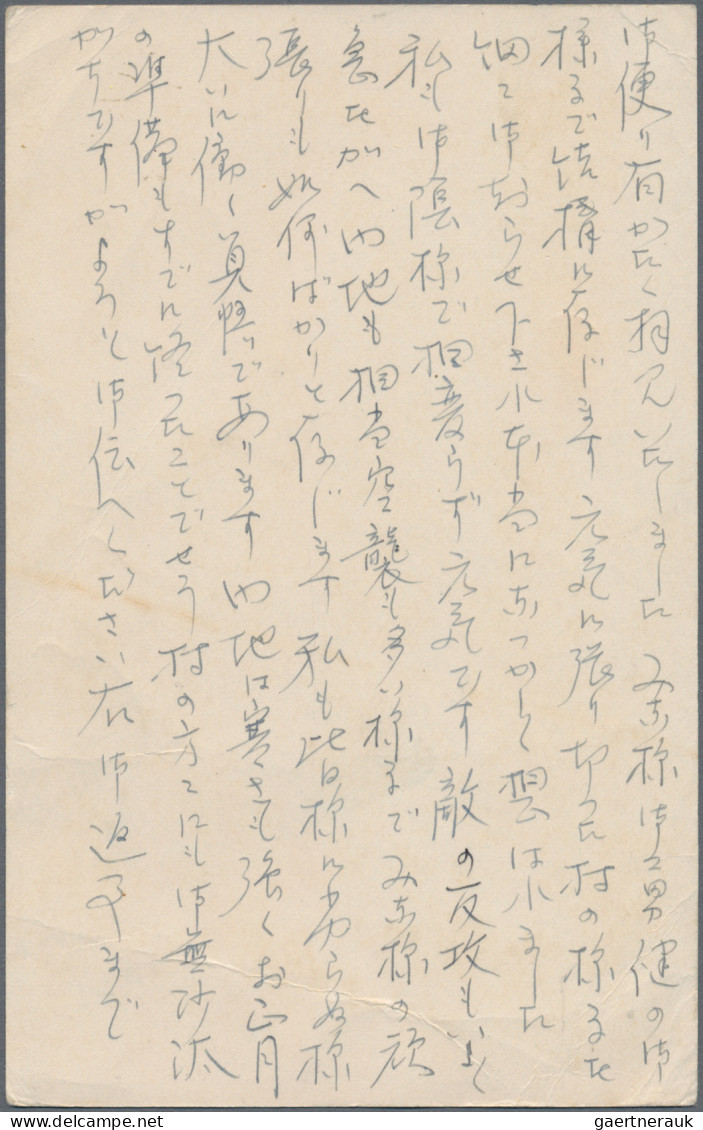 御便り有がたく拝見いたしました みな様御勇健の御
様子で結構に存じます 元気に張り切つた村の様子を
細々御知らせ下され本当になつかしく想はれました
私も御陰様で相変らず元気です 敵の反攻もいよ〱
急をつげ内地も相当空襲も多い様子で みな様の頑
張りも如何ばかりと存じます 私も皆様に劣らぬ様
大いに働く覚悟であります 内地は寒さも強くお正月
の準備もすでに終つたことでせう 村の方々にも御無沙汰
がちですがよろしく御伝へください 右御返事まで
delcampe.net
gaertnerauk